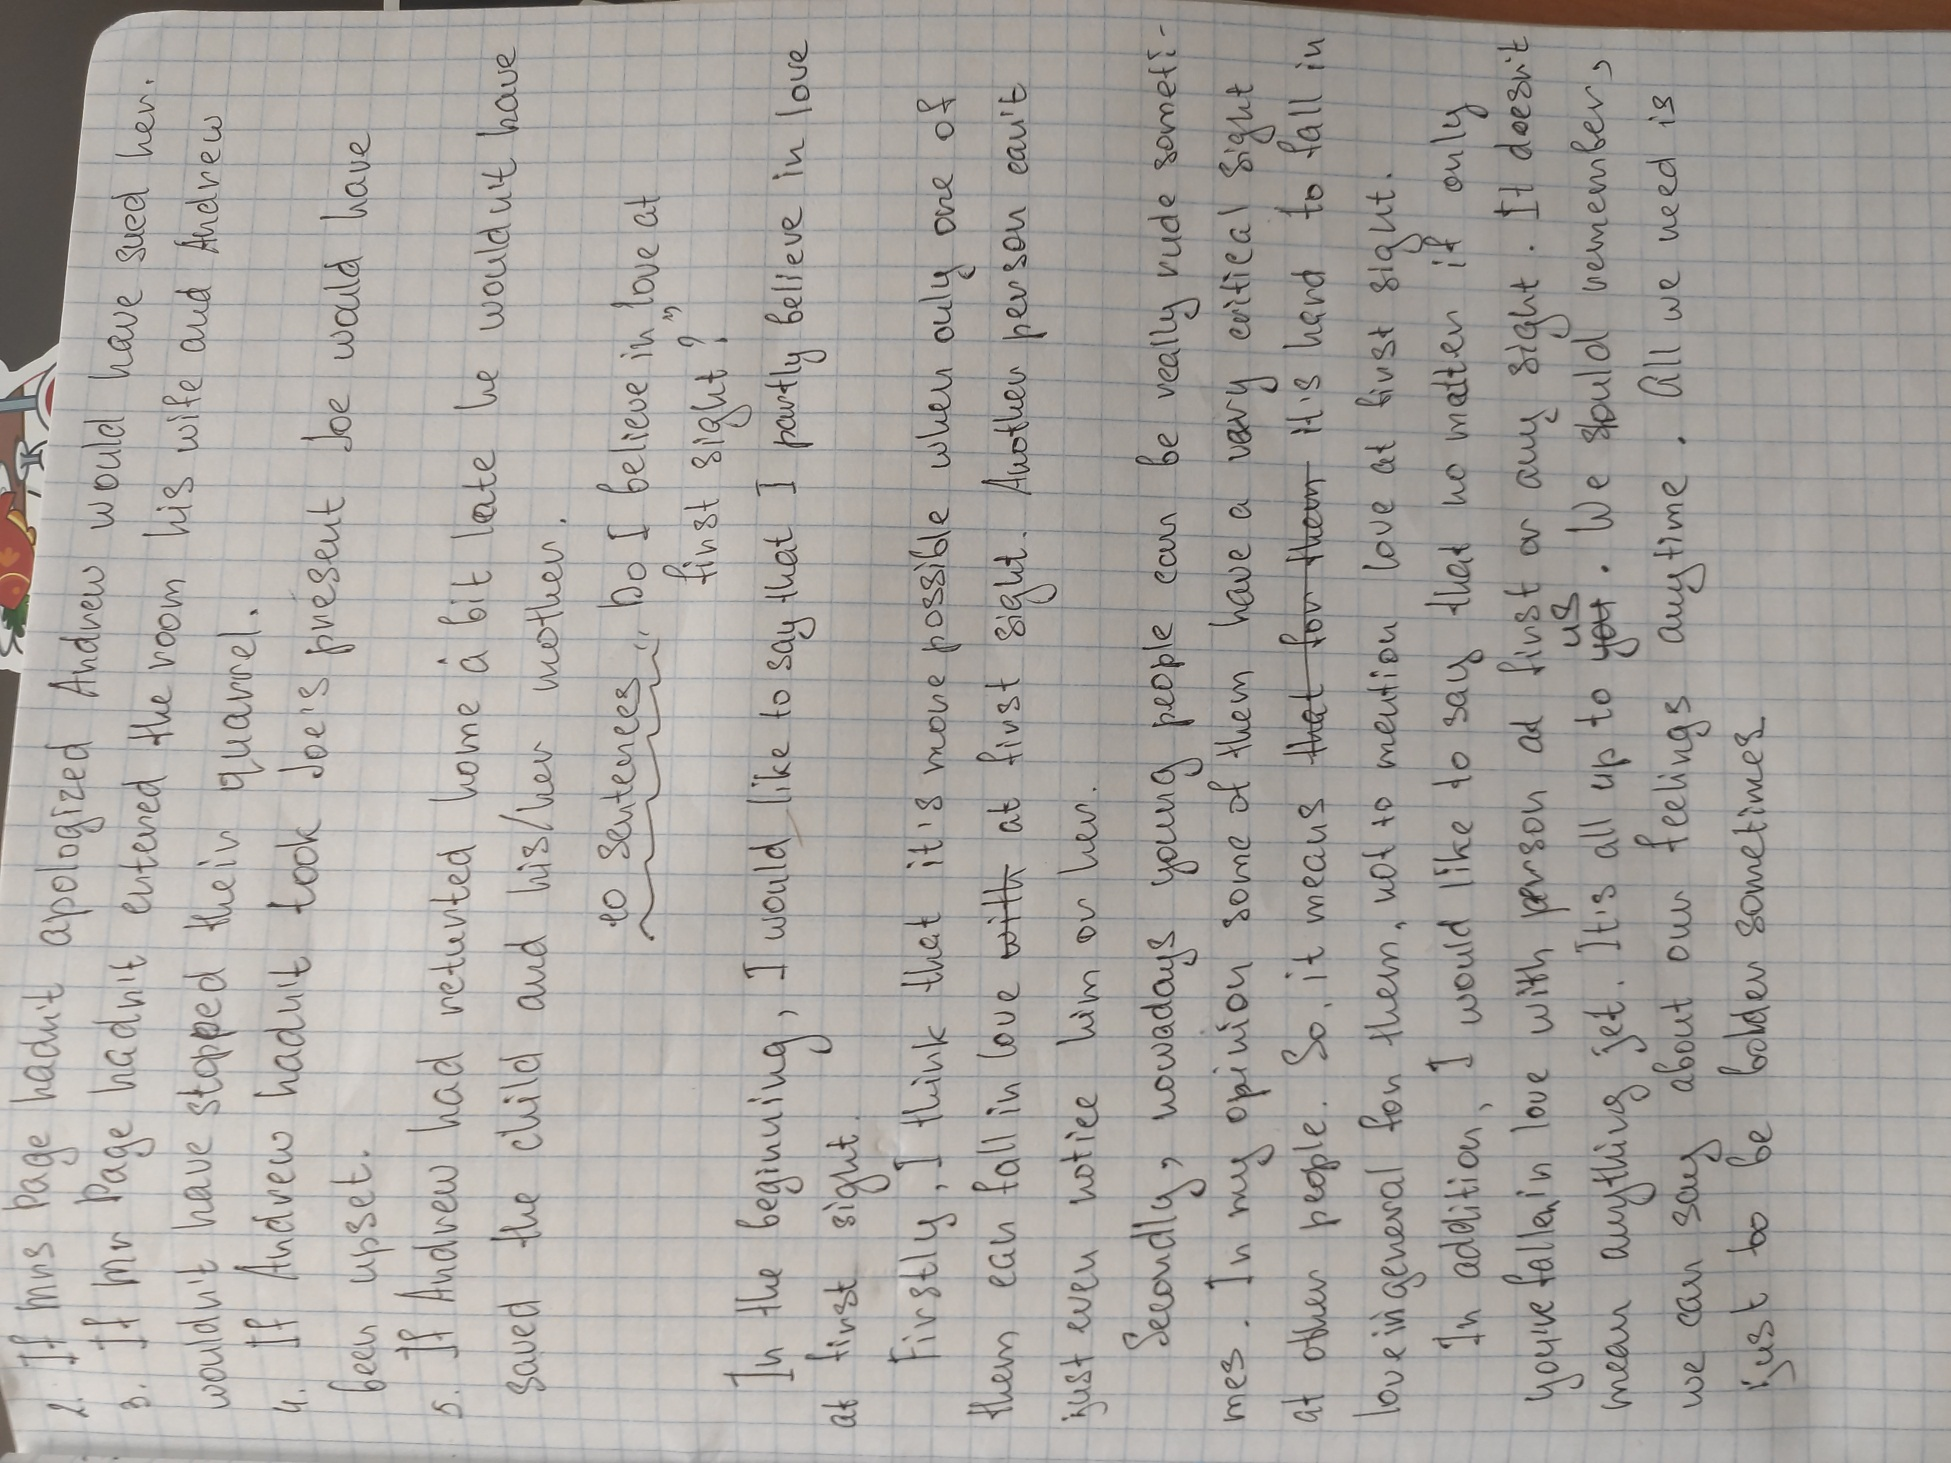 2. If Mrs Page hadn't apologized Andrew would have sued her.
3. If Mr Page hadn't entered the room his wife and Andrew
wouldn't have stopped their quarrel.
4. If Andrew hadn't took Joe's present Joe would have
been upset.
5. If Andrew had returnted home a bit late he wouldn't have
saved the child and his/her mother.
10 sentences " Do I believe in "love at
first sight?
In the beginning, I would like to say that I partly believe in love
at first sight.
Firstly, I think that it's more possible when only one of
them can fall in love with at first sight. Another person can't
just even notice him or her.
Secondly, nowadays young people can be really rude someti-
mes. In my opinion some of them have a very critical sight
at other people. So, it means that for them it's hard to fall in
love in general for them, not to mention love at first sight.
In addition, I would like to say that no matter if only
you're fallen in love with person at first or any sight. It doesn't
mean anything jet. It's all up to you us. We should remember,
we can say about our feelings anytime. All we need is
just to be bolder sometimes